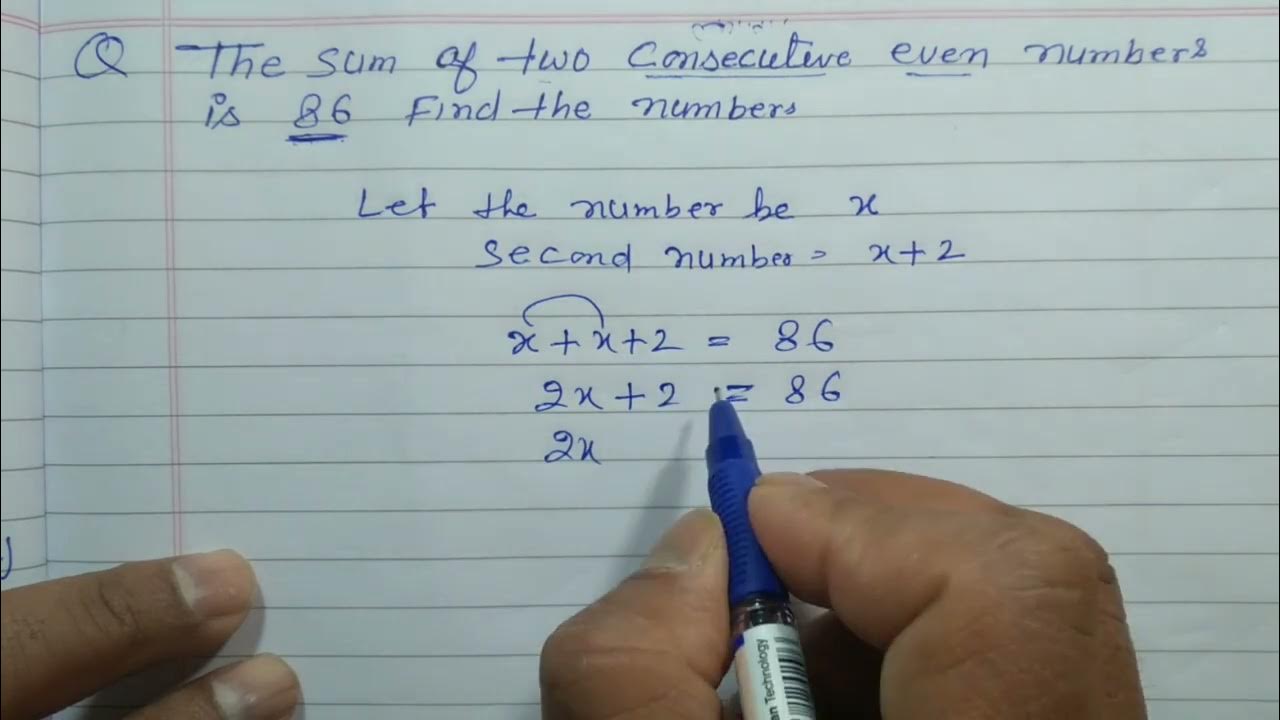 Q The sum of two Consecutive even numbers
is 86 Find the numbers
Let the number be x
Second number = x+2
x+x+2 = 86
2x+2 = 86
2x
Technology